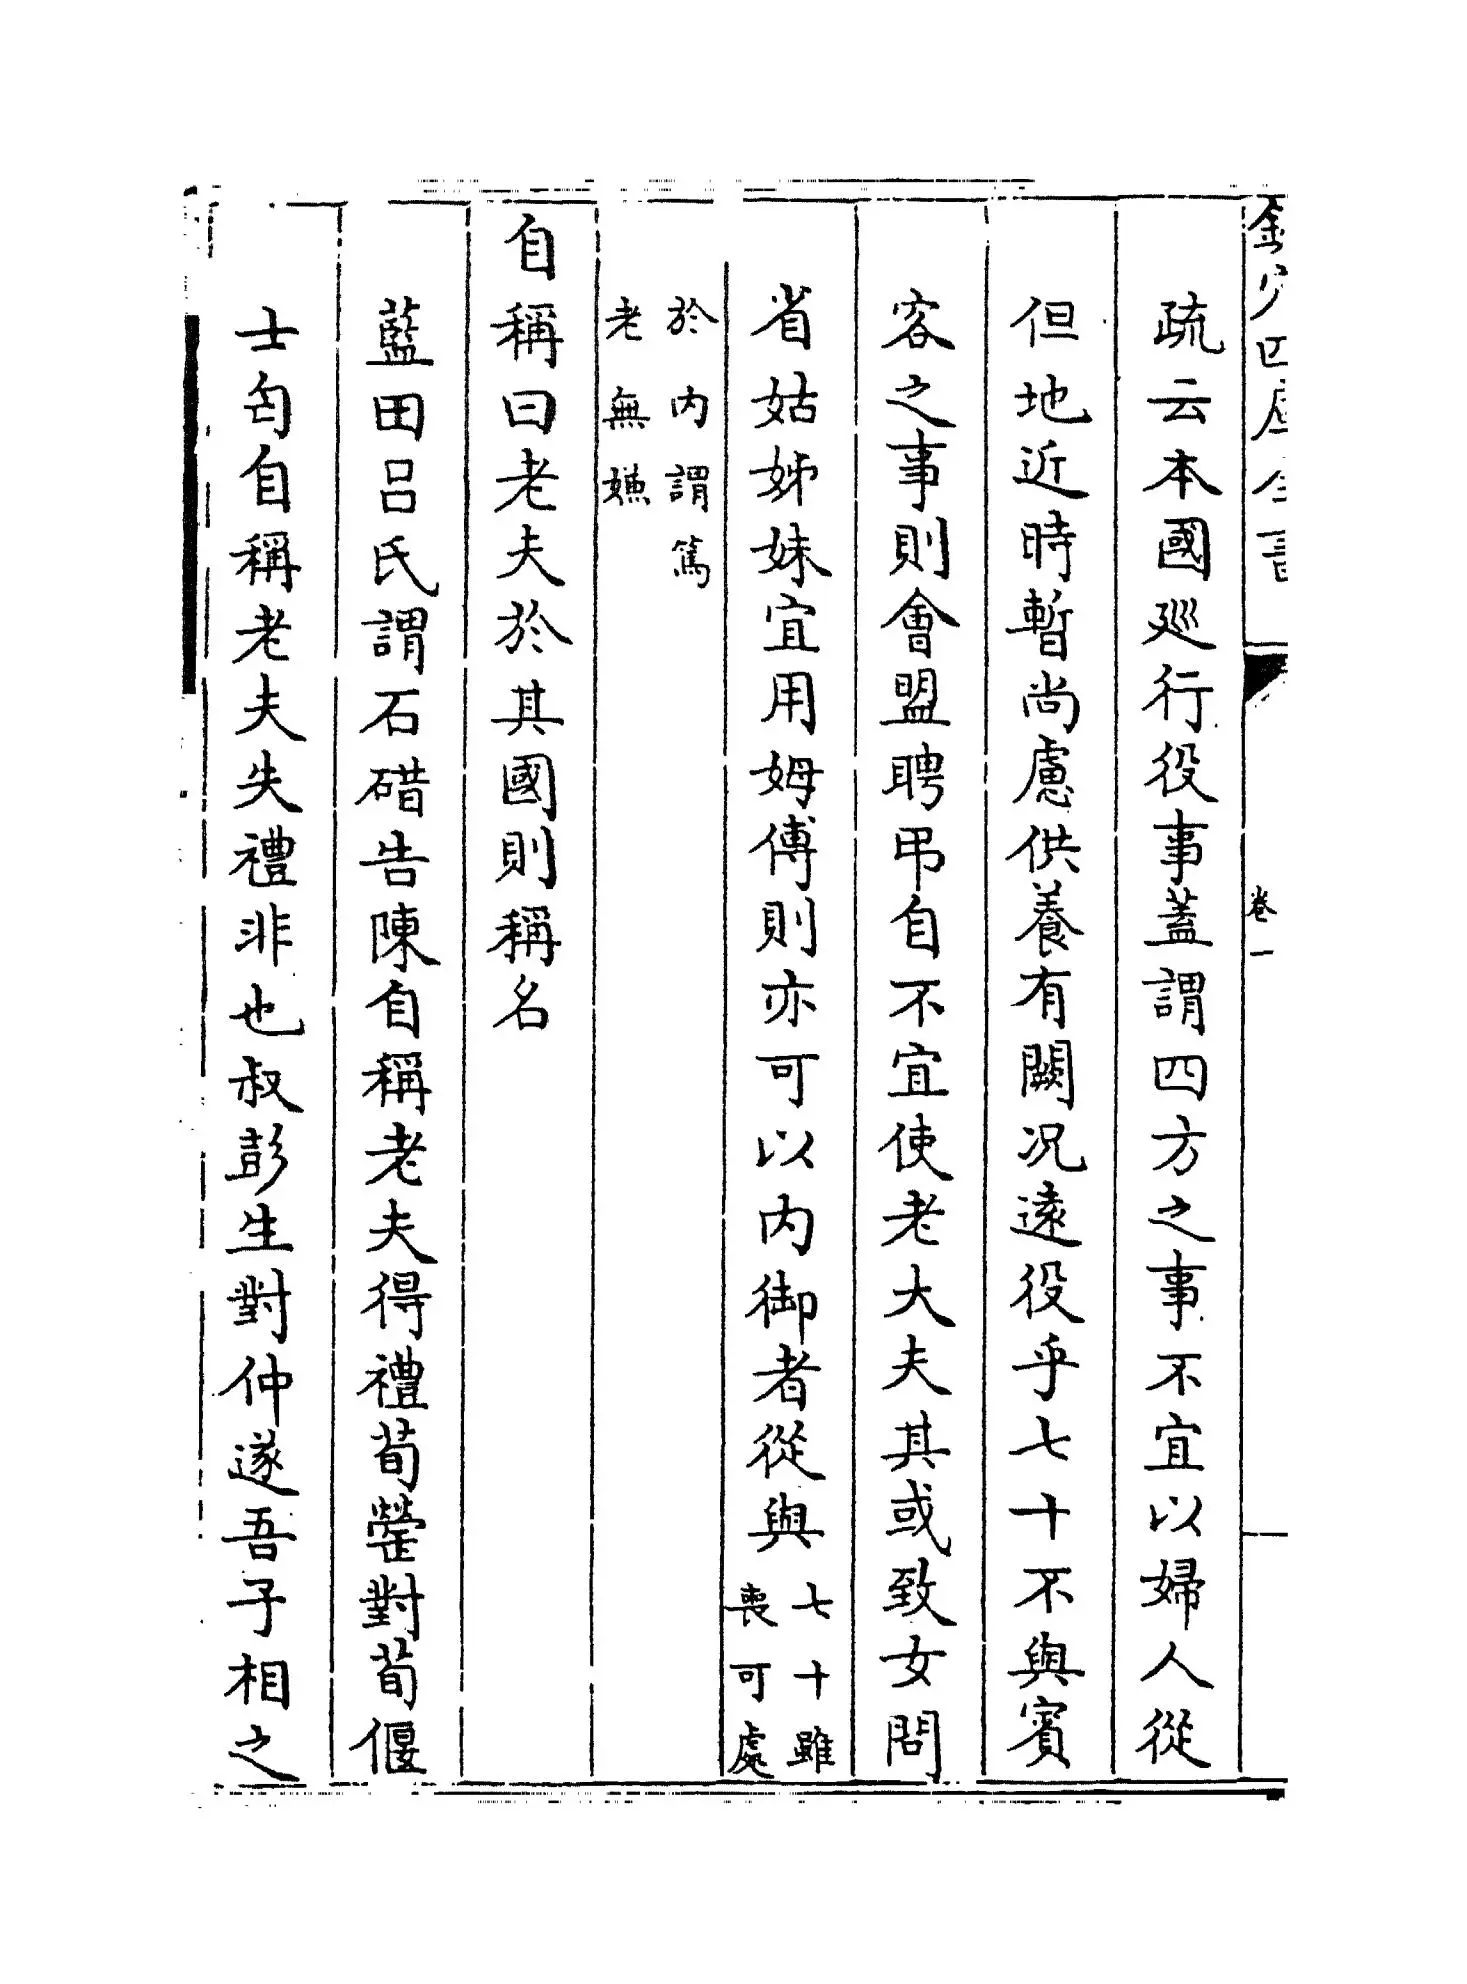 欽定四庫全書
卷一
疏云本國廵行役事蓋謂四方之事不宜以婦人從
但地近時暫尚慮供養有闕况遠役乎七十不與賔
客之事則會盟聘弔自不宜使老大夫其或致女問
省姑姊妹宜用姆傅則亦可以内御者從與
七十雖
喪可處
於内謂篤
老無嫌
自稱曰老夫於其國則稱名
藍田吕氏謂石碏告陳自稱老夫得禮荀罃對荀偃
士匄自稱老夫失禮非也叔彭生對仲遂吾子相之